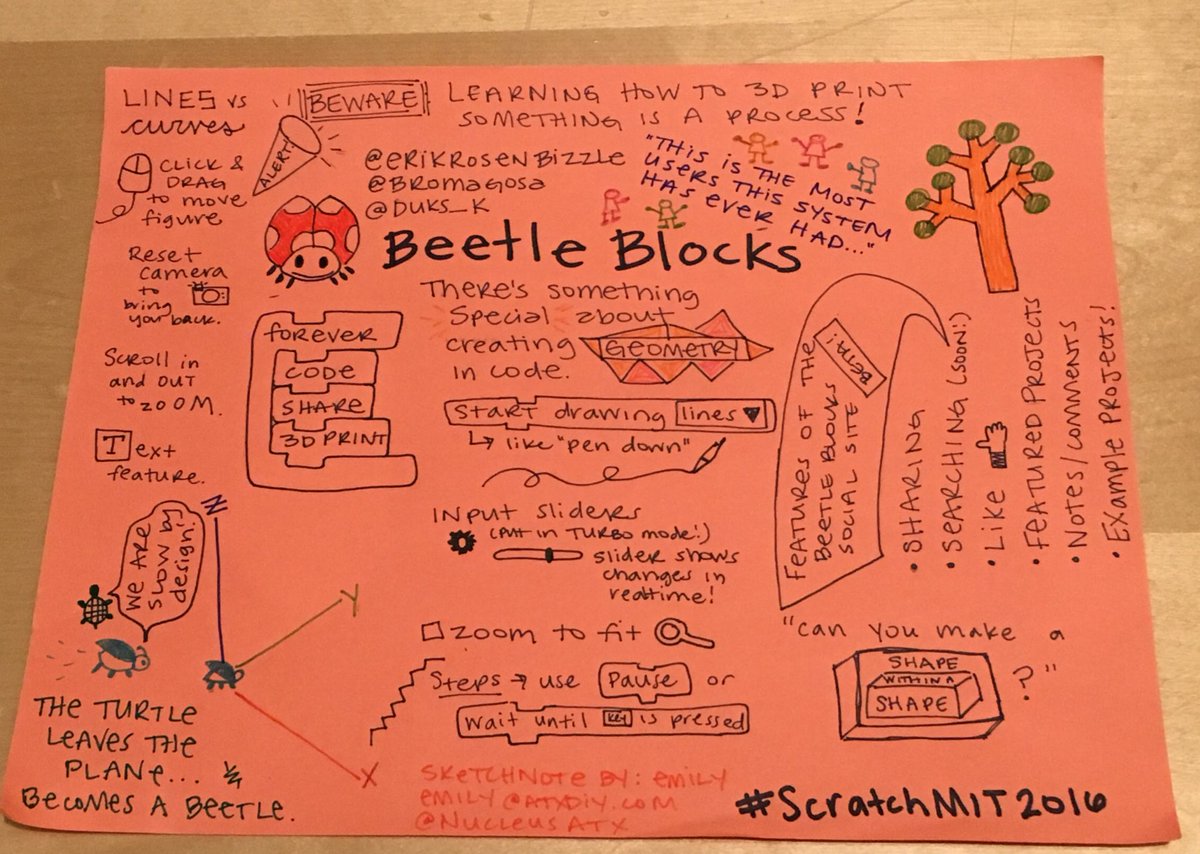 LINES vs
curves
BEWARE
LEARNING HOW TO 3D PRINT
SOMETHING IS A PROCESS!
ALERT!
CLICK &
DRAG
to move
figure
@ERIKROSENBIZZLE
@BROMAGOSA
@DUKS_K
"THIS IS THE MOST
USERS THIS SYSTEM
HAS EVER HAD..."
Beetle Blocks
Reset
camera
to
bring
you back.
Scroll in
and out
to ZOOM.
Text
feature.
forever
CODE
SHARE
3D PRINT
There's something
special about
creating
in code.
GEOMETRY
Start drawing lines
like "pen down"
Input sliders
(put in TURBO mode!)
slider shows
changes in
realtime!
FEATURES OF THE
BEETLE BLOCKS
SOCIAL SITE
BETA!
• SHARING
• SEARCHING (soon!)
• LIKE
• FEATURED PROJECTS
• NOTES/COMMENTS
• EXAMPLE PROJECTS!
WE ARE
SLOW BY
design!
Z
Y
X
THE TURTLE
LEAVES THE
PLANE...
BECOMES A BEETLE.
zoom to fit
Steps → use Pause or
wait until KEY is pressed
"can you make a
SHAPE
WITHIN A
SHAPE
?"
SKETCHNOTE BY: EMILY
EMILY@ATXDIY.COM
@NUCLEUSATX
#ScratchMIT2016